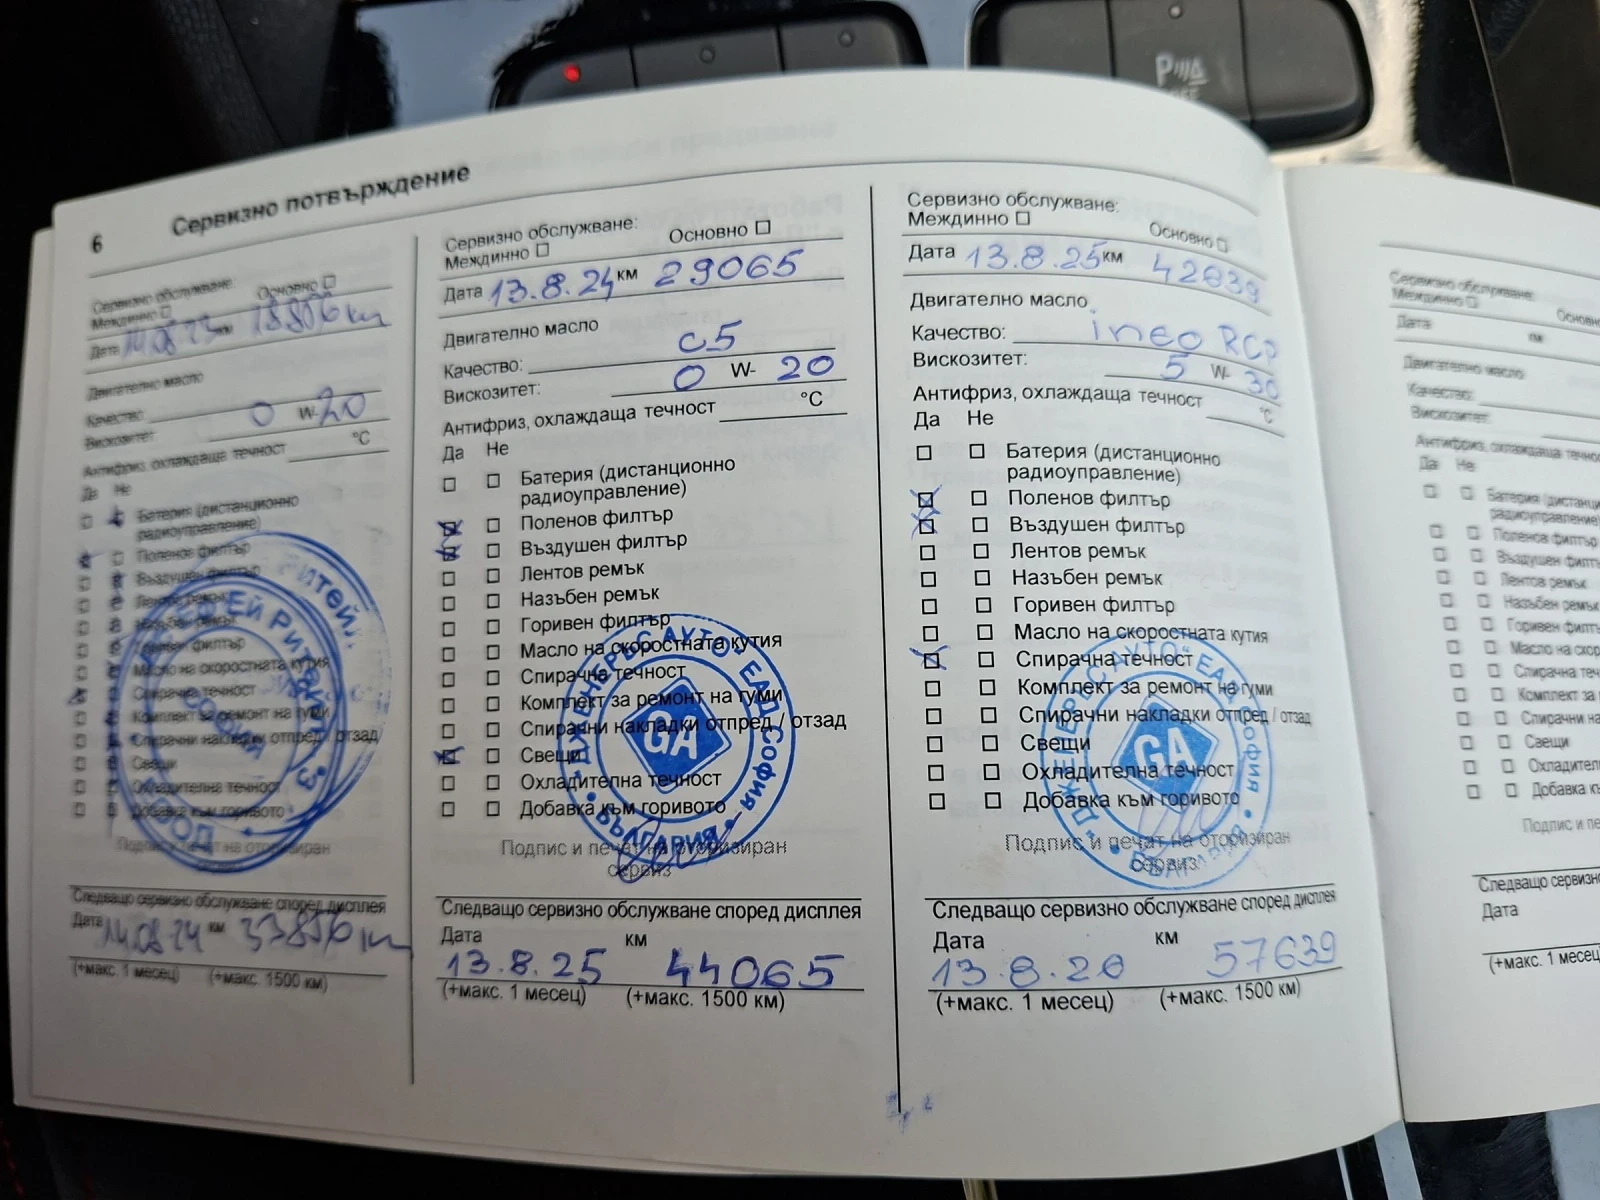 6
Сервизно потвърждение
Сервизно обслужване:
Междинно
Основно
Дата 14.08.23 км 18856 km
Двигателно масло
Качество:
Вискозитет: 0 W- 20
Антифриз, охлаждаща течност °C
Да Не
Батерия (дистанционно
радиоуправление)
Поленов филтър
Въздушен филтър
Лентов ремък
Назъбен ремък
филтър
Масло на скоростната кутия
Спирачна течност
Комплект за ремонт на гуми
Спирачни накладки отпред / отзад
Свещи
Охладителна течност
Добавка към горивото
Подпис и печат на оторизиран
Следващо сервизно обслужване според дисплея
Дата 14.08.24 км 33856 km
(+макс. 1 месец) (+макс. 1500 км)
Сервизно обслужване:
Междинно
Основно
Дата 13.8.24 км 29065
Двигателно масло
Качество: C5
Вискозитет: 0 W- 20
Антифриз, охлаждаща течност °C
Да Не
Батерия (дистанционно
радиоуправление)
Поленов филтър
Въздушен филтър
Лентов ремък
Назъбен ремък
Горивен филтър
Масло на скоростната кутия
Спирачна течност
Комплект за ремонт на гуми
Спирачни накладки отпред / отзад
Свещи
Охладителна течност
Добавка към горивото
"ДЖЕНЕРЪС АУТО" ЕАД София
• БЪЛГАРИЯ •
GA
Подпис и печат на оторизиран
сервиз
Следващо сервизно обслужване според дисплея
Дата км
13.8.25 44065
(+макс. 1 месец) (+макс. 1500 км)
Сервизно обслужване:
Междинно
Основно
Дата 13.8.25 км 42639
Двигателно масло
Качество: ineo RCP
Вискозитет: 5 W- 30
Антифриз, охлаждаща течност °C
Да Не
Батерия (дистанционно
радиоуправление)
Поленов филтър
Въздушен филтър
Лентов ремък
Назъбен ремък
Горивен филтър
Масло на скоростната кутия
Спирачна течност
Комплект за ремонт на гуми
Спирачни накладки отпред / отзад
Свещи
Охладителна течност
Добавка към горивото
"ДЖЕНЕРЪС АУТО" ЕАД София
GA
Подпис и печат на оторизиран
сервиз
Следващо сервизно обслужване според дисплея
Дата км
13.8.26 57639
(+макс. 1 месец) (+макс. 1500 км)
Сервизно обслужване:
Междинно
Дата км
Двигателно масло
Качество:
Вискозитет:
Да Не
Поленов филтър
Лентов ремък
Спирачна
Свещи
Следващо
Дата
(+макс. 1